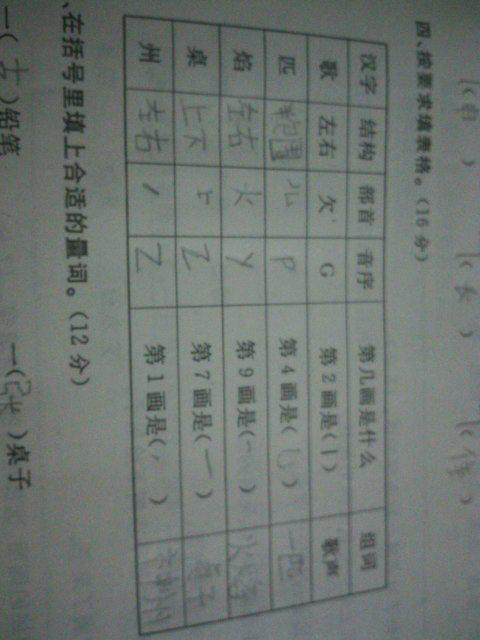 四、按要求填表格。(16分)
汉字 结构 部首 音序 第几画是什么 组词
歌 左右 欠 G 第2画是(丨) 歌声
匹 包围 儿 P 第4画是( ) 一匹
焰 左右 火 Y 第9画是(一) 火焰
桌 上下 上 Z 第7画是(一) 桌子
州 左右 丿 Z 第1画是( )
、在括号里填上合适的量词。(12分)
一(支)铅笔 一(张)桌子